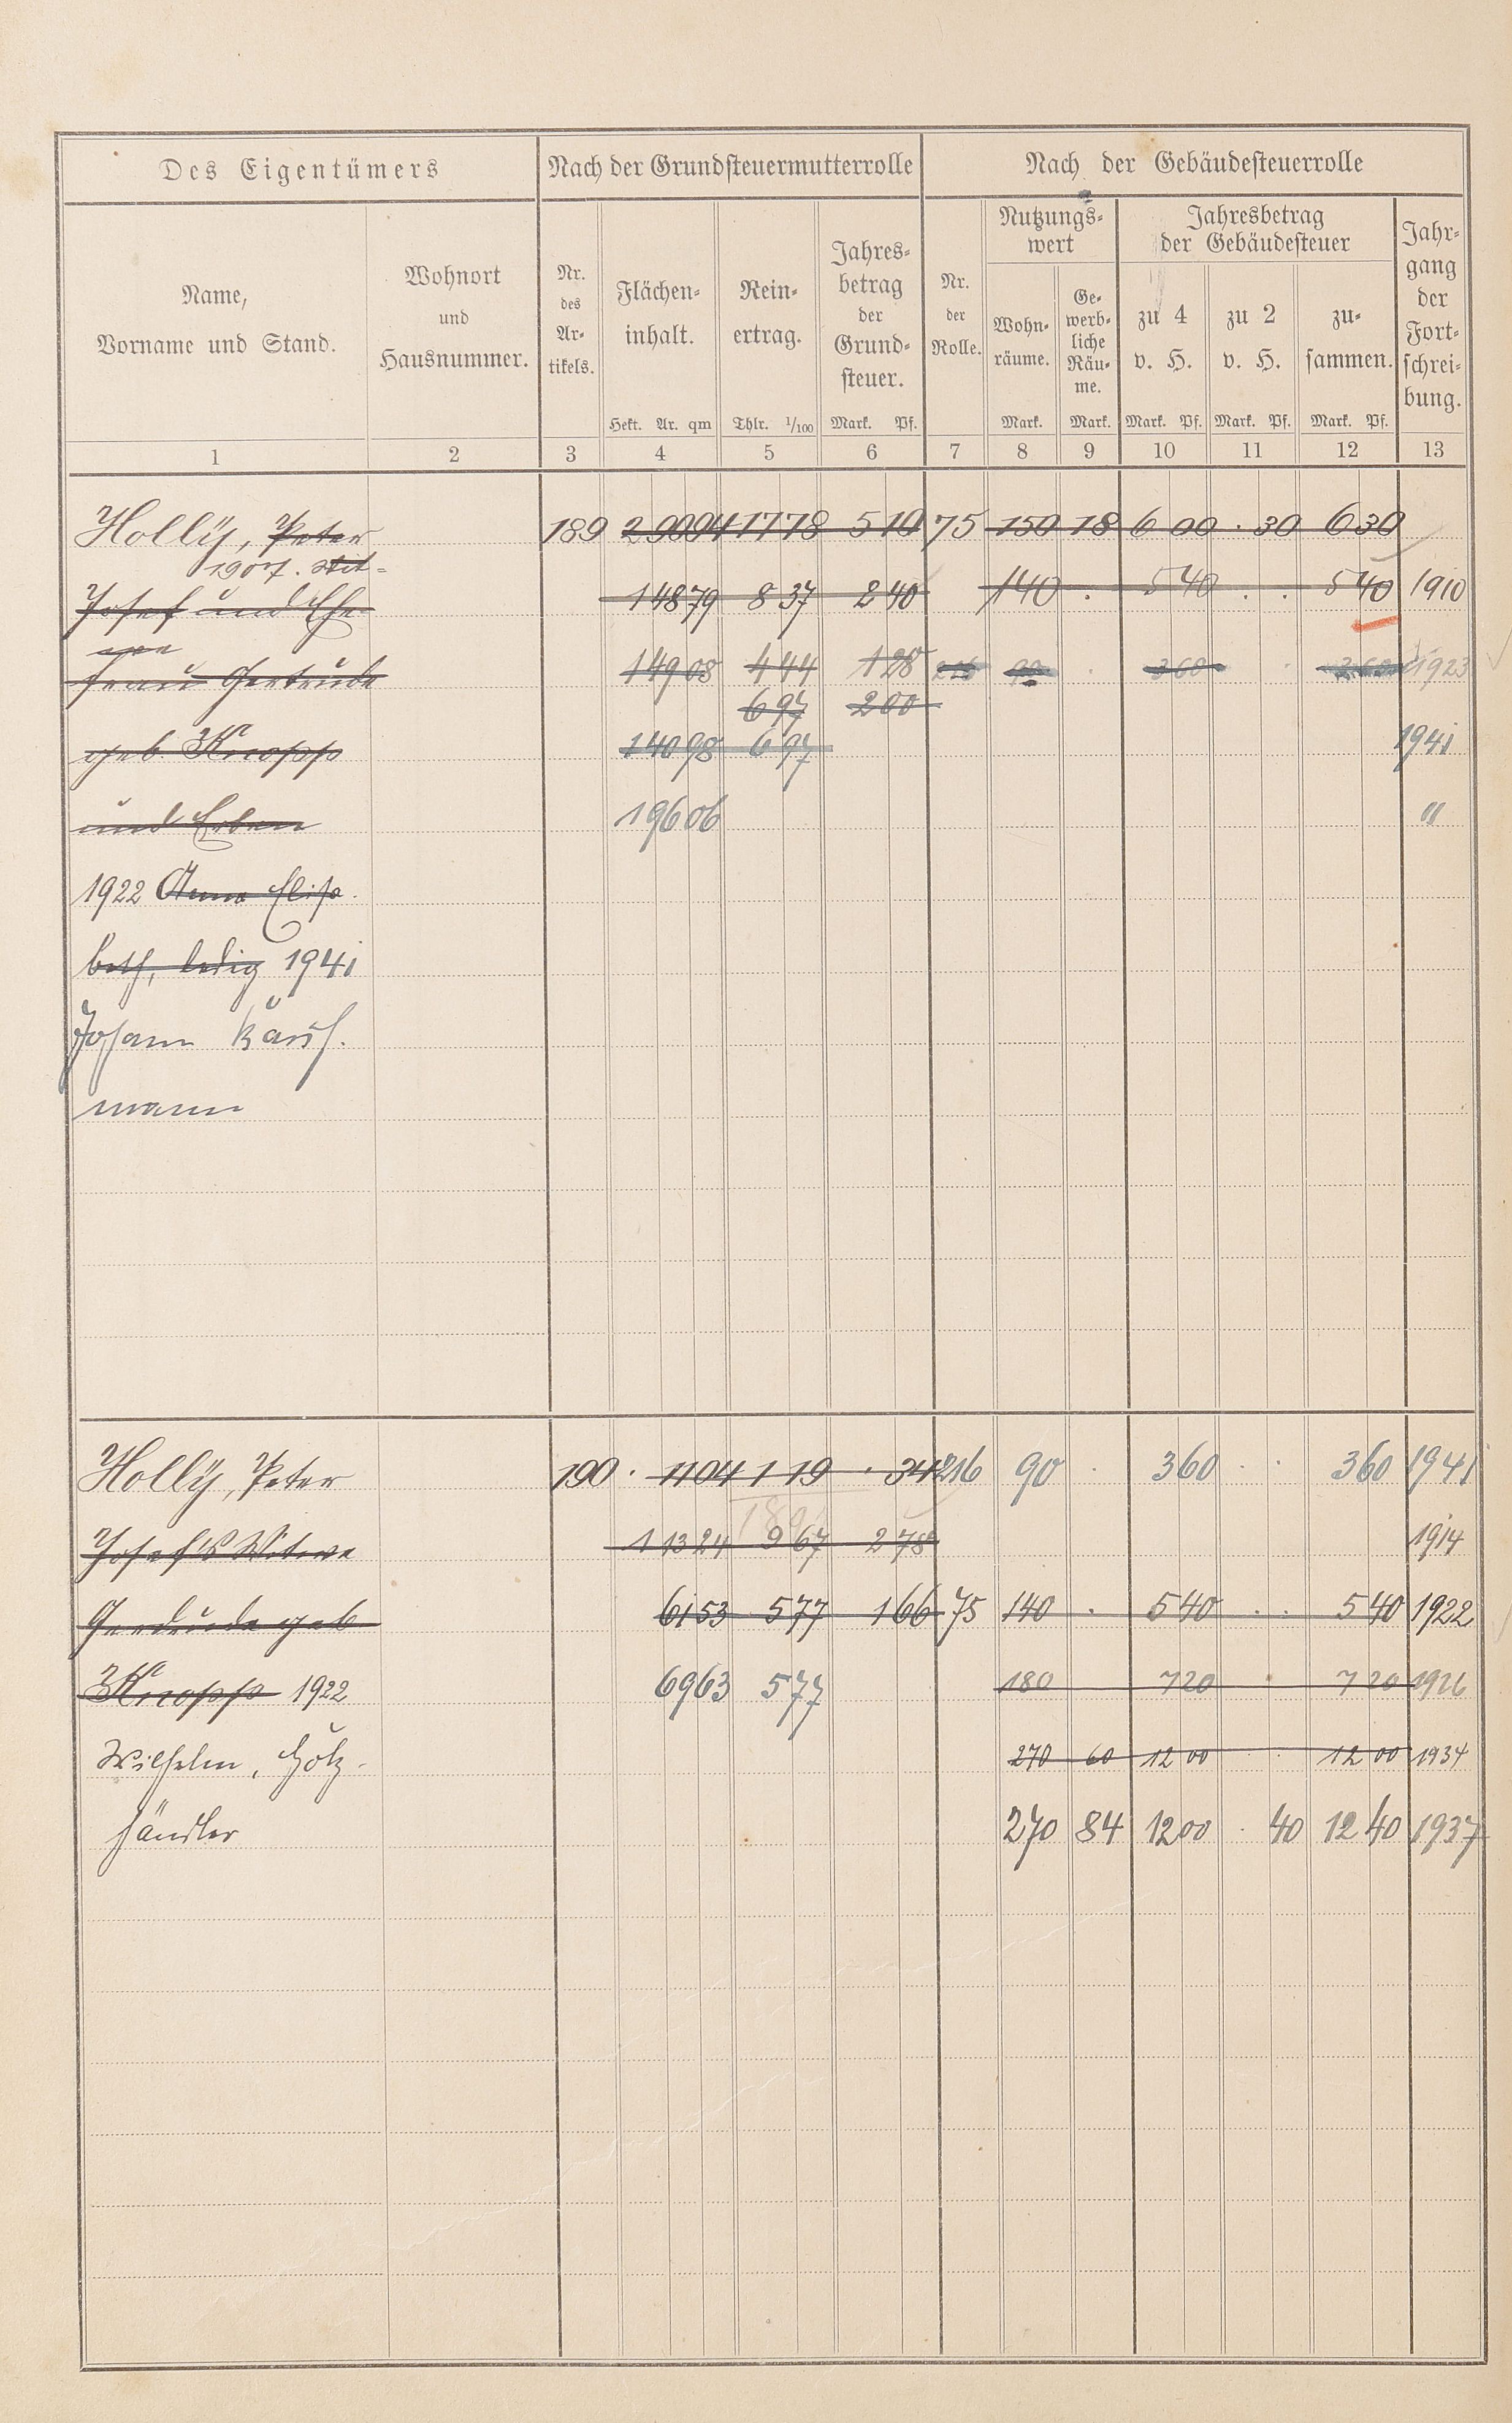 Des Eigentümers
Nach der Grundsteuermutterrolle
Nach der Gebäudesteuerrolle
Name,
Vorname und Stand.
Wohnort
und
Hausnummer.
Nr.
des
Ar-
tikels.
Flächen-
inhalt.
Hekt. Ar. qm
Rein-
ertrag.
Thlr. 1/100
Jahres-
betrag
der
Grund-
steuer.
Mark. Pf.
Nr.
der
Rolle.
Nutzungs-
wert
Wohn-
räume.
Mark.
Ge-
werb-
liche
Räu-
me.
Mark.
Jahresbetrag
der Gebäudesteuer
zu 4
v. H.
Mark. Pf.
zu 2
v. H.
Mark. Pf.
zu-
sammen.
Mark. Pf.
Jahr-
gang
der
Fort-
schrei-
bung.
1 2 3 4 5 6 7 8 9 10 11 12 13
Holly, Peter 189 2 90 04 17 78 5 10 75 150 18 6 00 . 30 6 30
1907.
Josef und Ehe 1 48 79 8 37 2 40 140 . 5 40 . . 5 40 1910
frau Gertrude 1 49 08 4 44 1 28 216 90 . 3 60 . 3 60 1923
6 97 2 00
geb. Knopp 1 40 98 6 97 1941
und Erben 1 96 06 "
1922 Anna Elisa-
beth, ledig 1941
Johann Kauf-
mann
Holly, Peter 190 . 11 04 1 19 . 34 216 90 . 3 60 . . 3 60 1941
Josef's Witwe 1 13 24 9 67 2 78 1914
Gertrude geb 61 53 5 77 1 66 75 140 . 5 40 . . 5 40 1922
Knopp 1922 69 63 5 77 180 7 20 . 7 20 1926
Wilhelm, Holz- 270 60 12 00 . . 12 00 1934
händler 270 84 12 00 . 40 12 40 1937